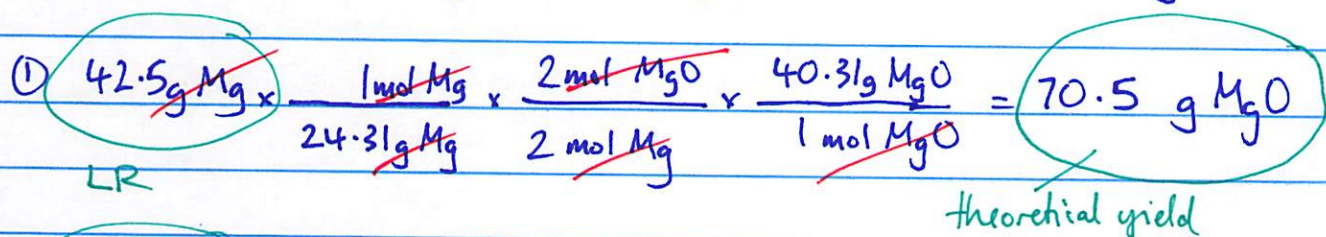 ① 42.5g Mg × 1 mol Mg / 24.31g Mg × 2 mol MgO / 2 mol Mg × 40.31g MgO / 1 mol MgO = 70.5 g MgO
LR
theoretical yield